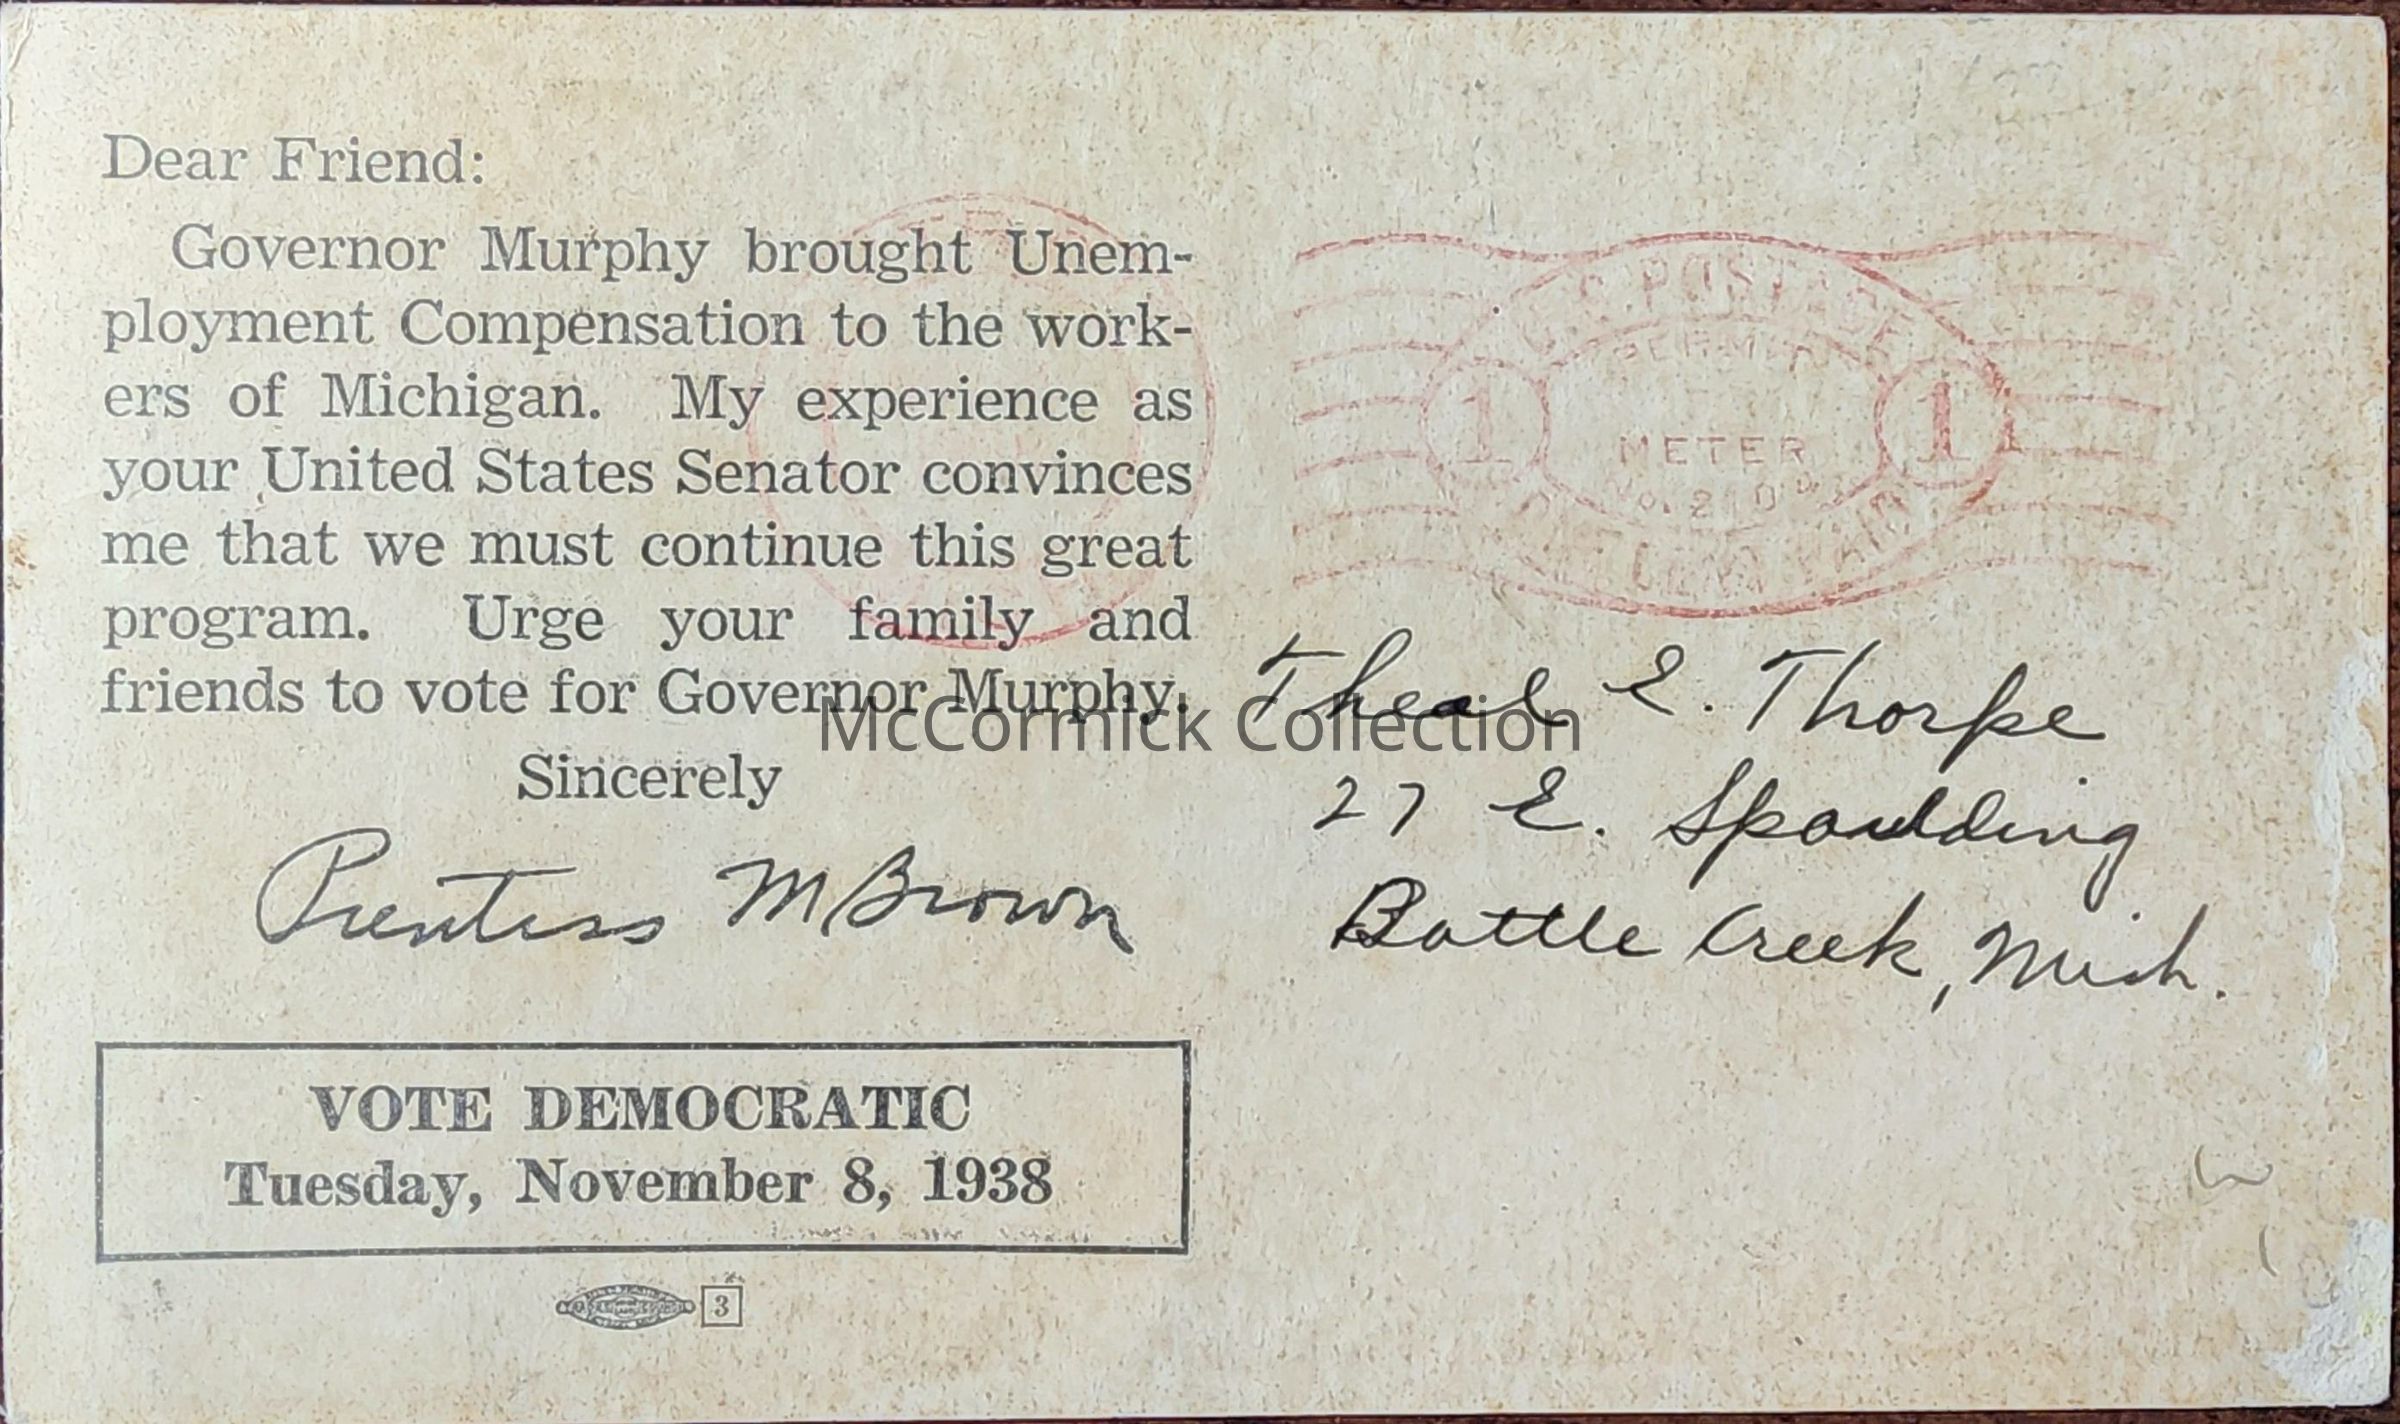 Dear Friend:
Governor Murphy brought Unem-
ployment Compensation to the work-
ers of Michigan. My experience as
your United States Senator convinces
me that we must continue this great
program. Urge your family and
friends to vote for Governor Murphy.
Sincerely
Prentiss M Brown
VOTE DEMOCRATIC
Tuesday, November 8, 1938
3
POSTAGE
1 METER 1
Theal E. Thorpe
27 E. Spaulding
Battle Creek, Mich.
McCormick Collection